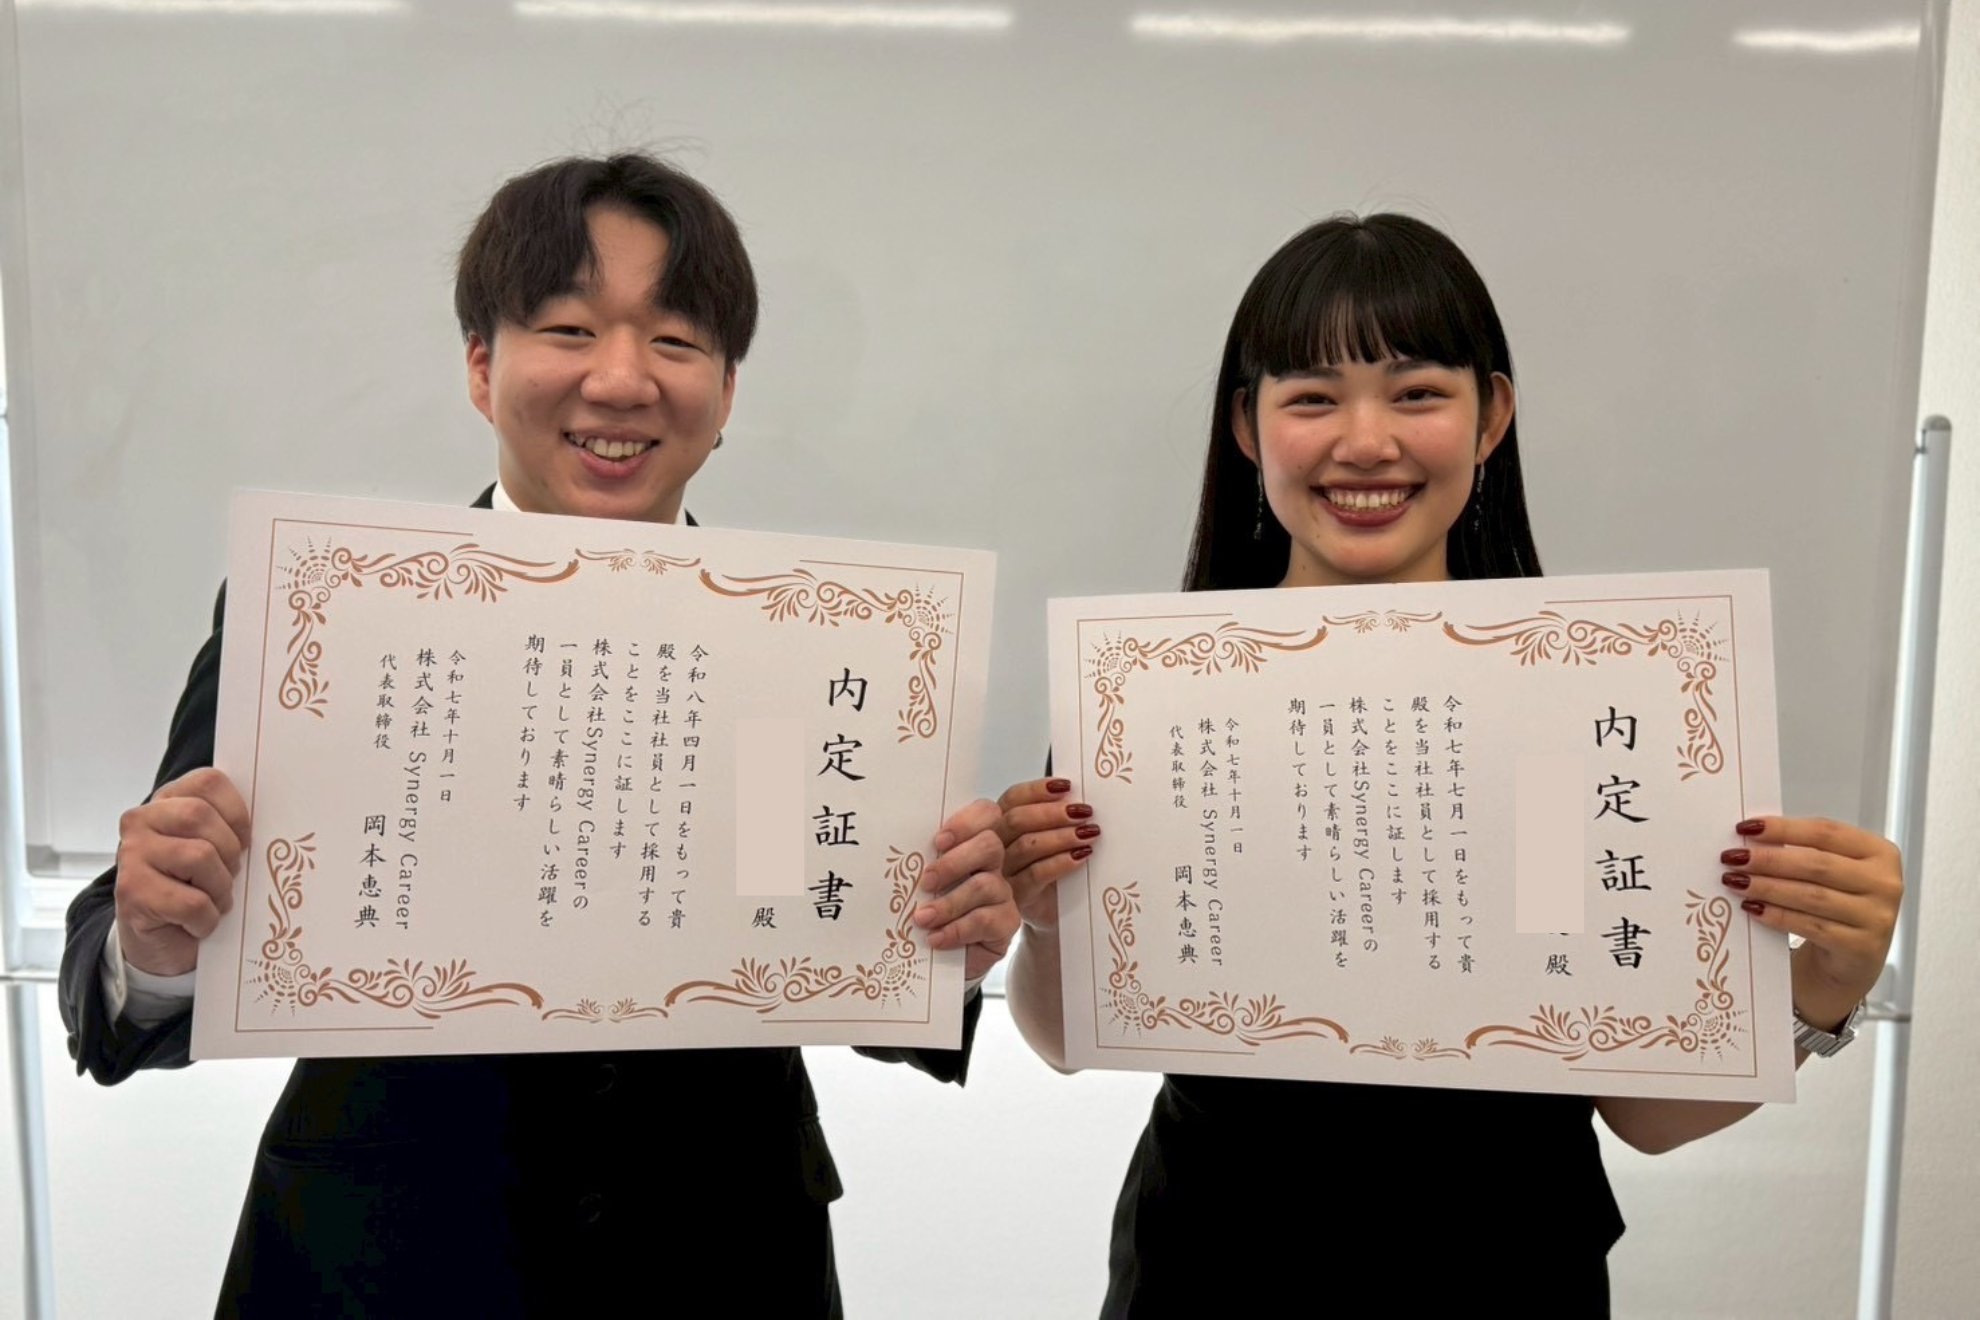 内定証書
殿
令和八年四月一日をもって貴
殿を当社社員として採用する
ことをここに証します
株式会社Synergy Careerの
一員として素晴らしい活躍を
期待しております
令和七年十月一日
株式会社 Synergy Career
代表取締役 岡本恵典
内定証書
殿
令和七年七月一日をもって貴
殿を当社社員として採用する
ことをここに証します
株式会社Synergy Careerの
一員として素晴らしい活躍を
期待しております
令和七年十月一日
株式会社 Synergy Career
代表取締役 岡本恵典